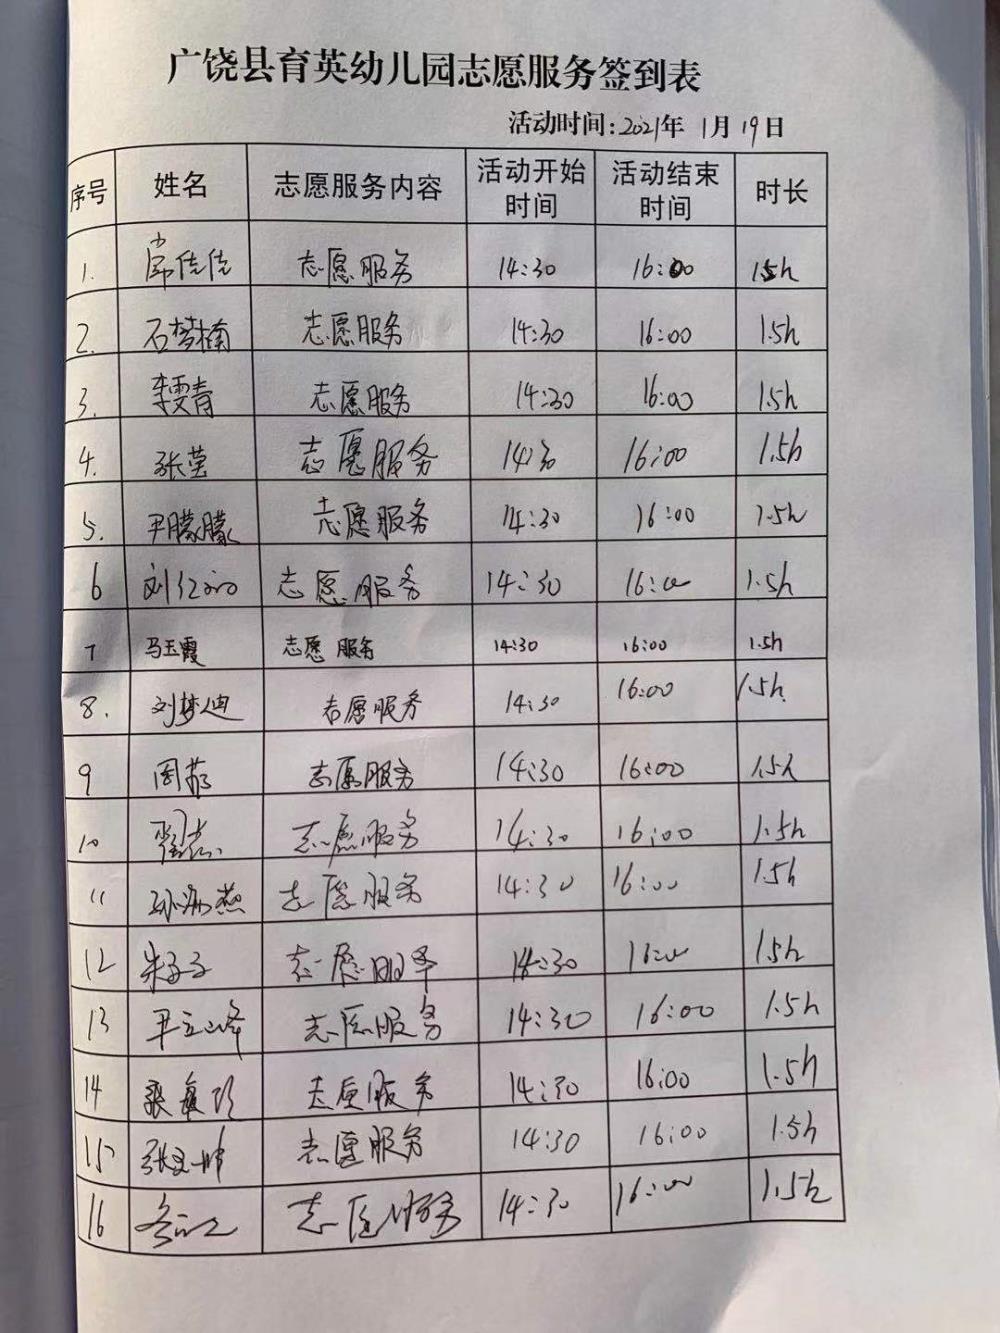 广饶县育英幼儿园志愿服务签到表
活动时间:2021年 1月 19日
序号 姓名 志愿服务内容 活动开始时间 活动结束时间 时长
1. 志愿服务 14:30 16:00 1.5h
2. 石梦楠 志愿服务 14:30 16:00 1.5h
3. 李雯青 志愿服务 14:30 16:00 1.5h
4. 张莹 志愿服务 14:30 16:00 1.5h
5. 尹朦朦 志愿服务 14:30 16:00 1.5h
6 志愿服务 14:30 16:00 1.5h
7 马玉霞 志愿服务 14:30 16:00 1.5h
8. 刘梦迪 志愿服务 14:30 16:00 1.5h
9 志愿服务 14:30 16:00 1.5h
10 志愿服务 14:30 16:00 1.5h
11 志愿服务 14:30 16:00 1.5h
12 志愿服务 14:30 16:00 1.5h
13 尹立峰 志愿服务 14:30 16:00 1.5h
14 志愿服务 14:30 16:00 1.5h
15 志愿服务 14:30 16:00 1.5h
16 志愿服务 14:30 16:00 1.5h